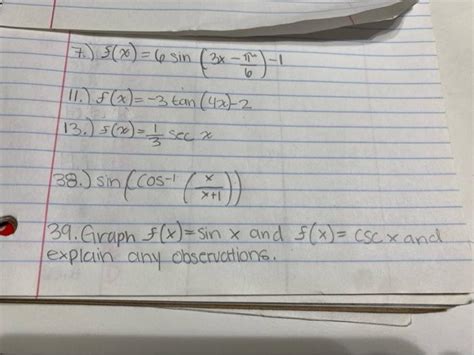 7.) f(x) = 6 sin (3x - π/6) - 1
11.) f(x) = -3 tan (4x) - 2
13.) f(x) = 1/3 sec x
38.) sin(cos⁻¹(x/x+1))
39. Graph f(x) = sin x and f(x) = csc x and
explain any observations.